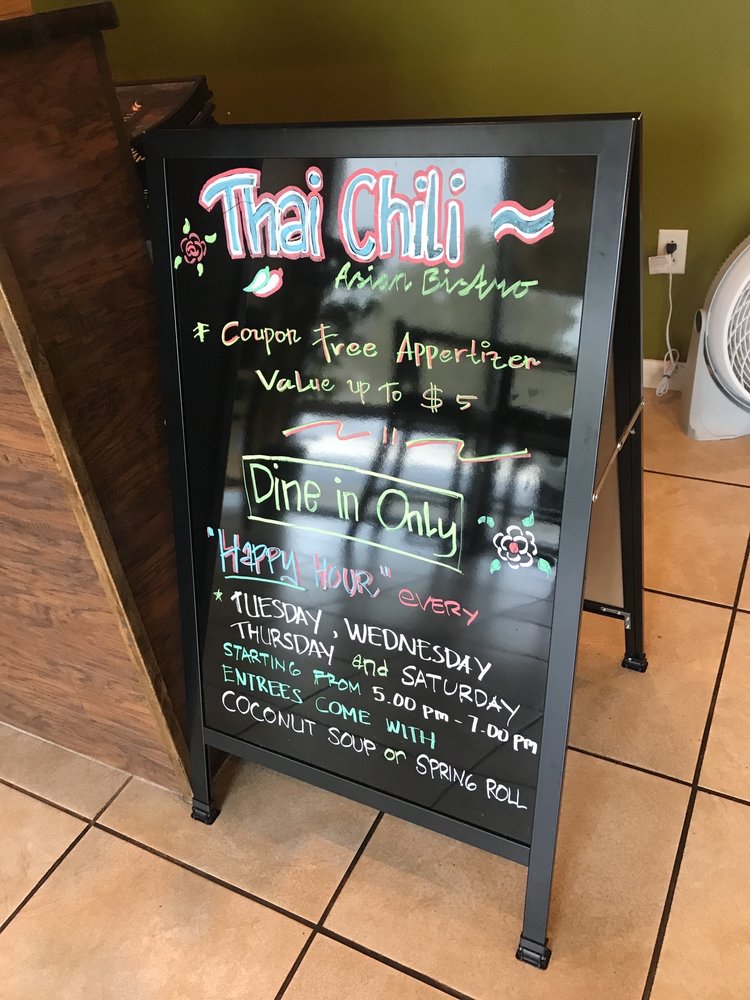 Thai Chili
Asian Bistro
* Coupon Free Appertizer
Value up to $5
Dine in Only
"Happy HOUR" eveRy
* TUESDAY, WEDNESDAY
THURSDAY and SATURDAY
STARTING FROM 5.00 pm - 7.00 pm
ENTREES COME WITH
COCONUT SOUP or SPRING ROLL